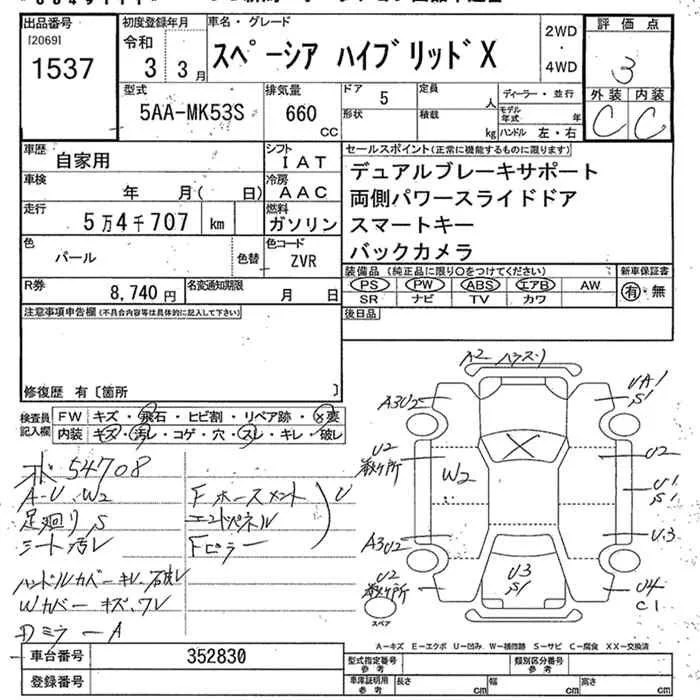 出品番号
[2069]
1537
初度登録年月
令和
3 3月
車名・グレード
スペーシア ハイブリッドX
2WD
・
4WD
評価点
3
外装 内装
C C
型式
5AA-MK53S
排気量
660 CC
ドア 5
形状
定員 人
積載 kg
ディーラー・並行
モデル年式 年
ハンドル 左・右
車歴
自家用
シフト
IAT
車検
年 月( 日)
冷房
AAC
走行
5万4千707 km
燃料
ガソリン
色
パール
色替
色コード
ZVR
R券
8,740円
名変通知期限
月 日
セールスポイント(正常に機能するものに限ります)
デュアルブレーキサポート
両側パワースライドドア
スマートキー
バックカメラ
装備品(純正品に限り○をつけてください)
PS PW ABS エアB AW
SR ナビ TV カワ
新車保証書
有・無
後日品
注意事項申告欄(不具合内容等は具体的に記入して下さい)
修復歴 有〔箇所 〕
検査員
記入欄
FW キズ・飛石・ヒビ割・リペア跡・×要
内装 キズ・汚レ・コゲ・穴・スレ・キレ・破レ
ホ 54708
A-U、W2
足廻り S
シート汚レ
ハンドルカバーキレ、
Wカバーキズ、ワレ
DミラーA
Fホースメント
エンドパネル
Fピラー
U
A2
A3U2
UA1
S1
U2
数ヶ所
W2
U2
U1
S1
A3U2
U3
U2
数ヶ所
U3
S1
U4
C1
スペア
A-キズ E-エクボ U-凹み W-補修跡 S-サビ C-腐食 XX-交換済
車台番号
352830
登録番号
型式指定番号
参考
類別区分番号
参考
車庫証明用
参考
長さ cm
幅 cm
高さ cm